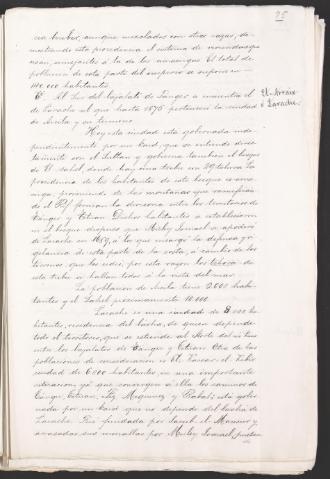 75
cia bereber, aunque mezclados con otras razas, de-
mostrando esta procedencia el sistema de viviendas que
usan, semejantes á la de los amazirgas. El total de
poblacion de esta parte del imperio se supone en
100.000 habitantes.
El-Araix
ó Larache.
Al Sur del bajalato de Tanger se encuentra el
de Larache al que hasta 1875 perteneció la ciudad
de Arcila y su termino.
Hoy esta ciudad está gobernada inde-
pendientemente por un kaid, que se entiende direc-
tamente con el Sultan y gobierna tambien el bosque
de El-Sahel, donde hay una tribu en 29 tchras. La
procedencia de los habitantes de este bosque es ama-
zirga, proviniendo de las montañas que
del Rif forman la divisoria entre los territorios de
Tánger y Tetuan. Dichos habitantes se establecieron
en el bosque despues que Muley Ismael se apoderó
de Larache en 1689, á los que encargó la defensa y vi-
gilancia de esta parte de la costa, á cambio de los
terrenos que les cedió; por esta razon los tchras de
esta tribu se hallan todos á la vista del mar.
La poblacion de Arcila tiene 2.000 habi-
tantes y el Sahel proximamente 10.000.
Larache es una ciudad de 8.000 ha-
bitantes, residencia del bacha, de quien depende
todo el territorio, que se extiende al Norte del
entre los bajalatos de Tanger y Tetuan. Otra de las
poblaciones de consideracion es El-Kazar-el-Kibir
ciudad de 6.000 habitantes, en una importante
situacion, ya que convergen á ella los caminos de
Tánger, Tetuan, Fez, Mequinez y Rabat; está gober-
nada por un kaid que no depende del bacha de
Larache. Fué fundada por Jacub el Mansur y
arrasadas sus murallas por Muley Ismael,